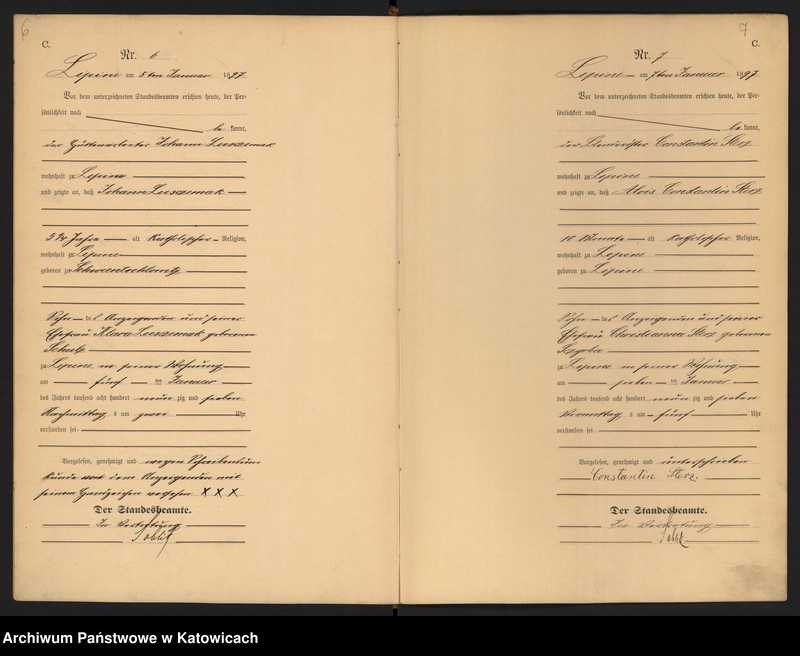 6
C.
Nr. 6
Lipine am 5ten Januar 1897
Vor dem unterzeichneten Standesbeamten erschien heute, der Per-
sönlichkeit nach
be kannt,
der Hüttenarbeiter Johann
wohnhaft zu Lipine
und zeigte an, daß Johann
3 3/4 Jahre alt katholischer Religion,
wohnhaft zu Lipine
geboren zu Schwientochlowitz
Sohn des Anzeigenden und seiner
Ehefrau Klara geborenen
Schulz
zu Lipine in seiner Wohnung
am fünf ten Januar
des Jahres tausend acht hundert neun zig und sieben
Nachmittag s um zwei Uhr
verstorben sei
Vorgelesen, genehmigt und wegen Schreibenun
kunde von dem Anzeigenden mit
seinem Handzeichen versehen X X X
Der Standesbeamte.
In Vertretung
7
C.
Nr. 7
Lipine am 7ten Januar 1897
Vor dem unterzeichneten Standesbeamten erschien heute, der Per-
sönlichkeit nach
be kannt,
der Constantin Sterz
wohnhaft zu Lipine
und zeigte an, daß Alois Constantin Sterz
10 Monate alt katholischer Religion,
wohnhaft zu Lipine
geboren zu Lipine
Sohn des Anzeigenden und seiner
Ehefrau Christianna Sterz geborenen
zu Lipine in seiner Wohnung
am sieben ten Januar
des Jahres tausend acht hundert neun zig und sieben
Vormittag s um fünf Uhr
verstorben sei
Vorgelesen, genehmigt und unterschrieben
Constantin Sterz.
Der Standesbeamte.
In Vertretung
Archiwum Państwowe w Katowicach